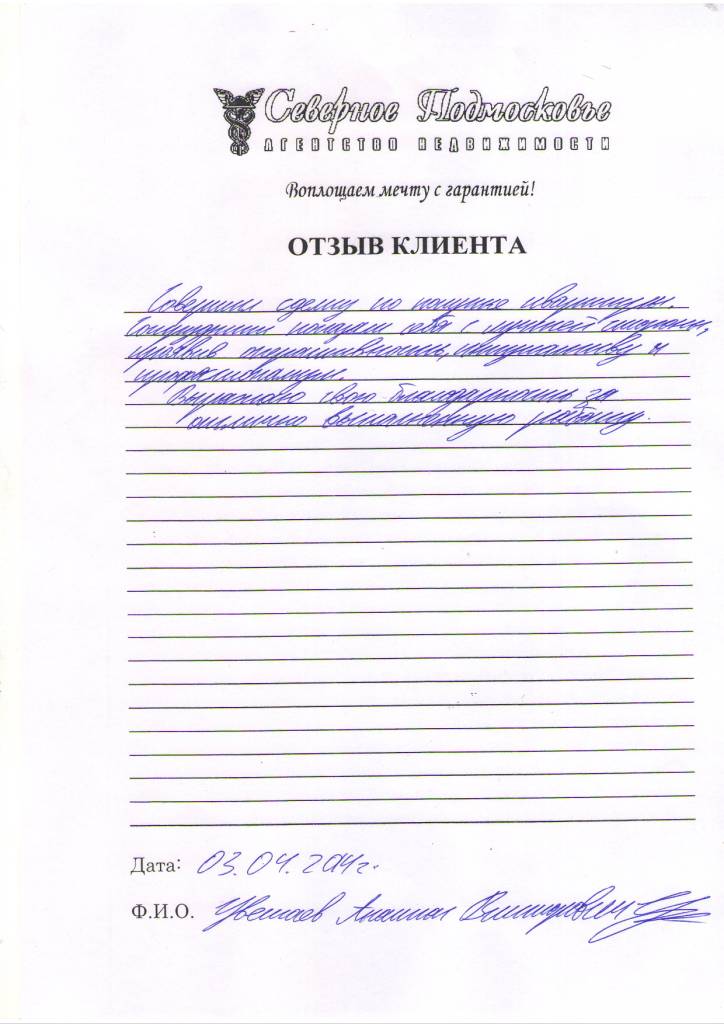 Северное Подмосковье
АГЕНТСТВО НЕДВИЖИМОСТИ
Воплощаем мечту с гарантией!
ОТЗЫВ КЛИЕНТА
Совершили сделку по покупке квартиры.
Сотрудники показали себя с лучшей стороны,
проявив оперативность, и
Выражаю свою благодарность за
отлично выполненную работу.
Дата: 03.04.2014г.
Ф.И.О. Цветаев Анатолий Викторович